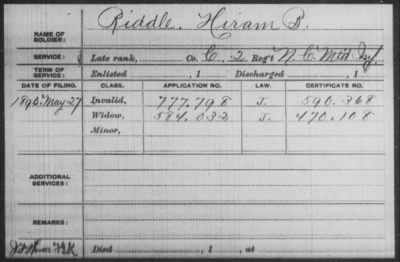 Riddle, Hiram B.
NAME OF SOLDIER:
SERVICE: Late rank, Co. C, 2 Reg't N. C. Mtd Inf.
TERM OF SERVICE: Enlisted , 1 Discharged , 1
DATE OF FILING. CLASS. APPLICATION NO. LAW. CERTIFICATE NO.
May 27 Invalid, 777.798 J. 590.368
Widow, 584.032 J. 470.108
Minor,
ADDITIONAL SERVICES:
REMARKS:
Died , 1 , at